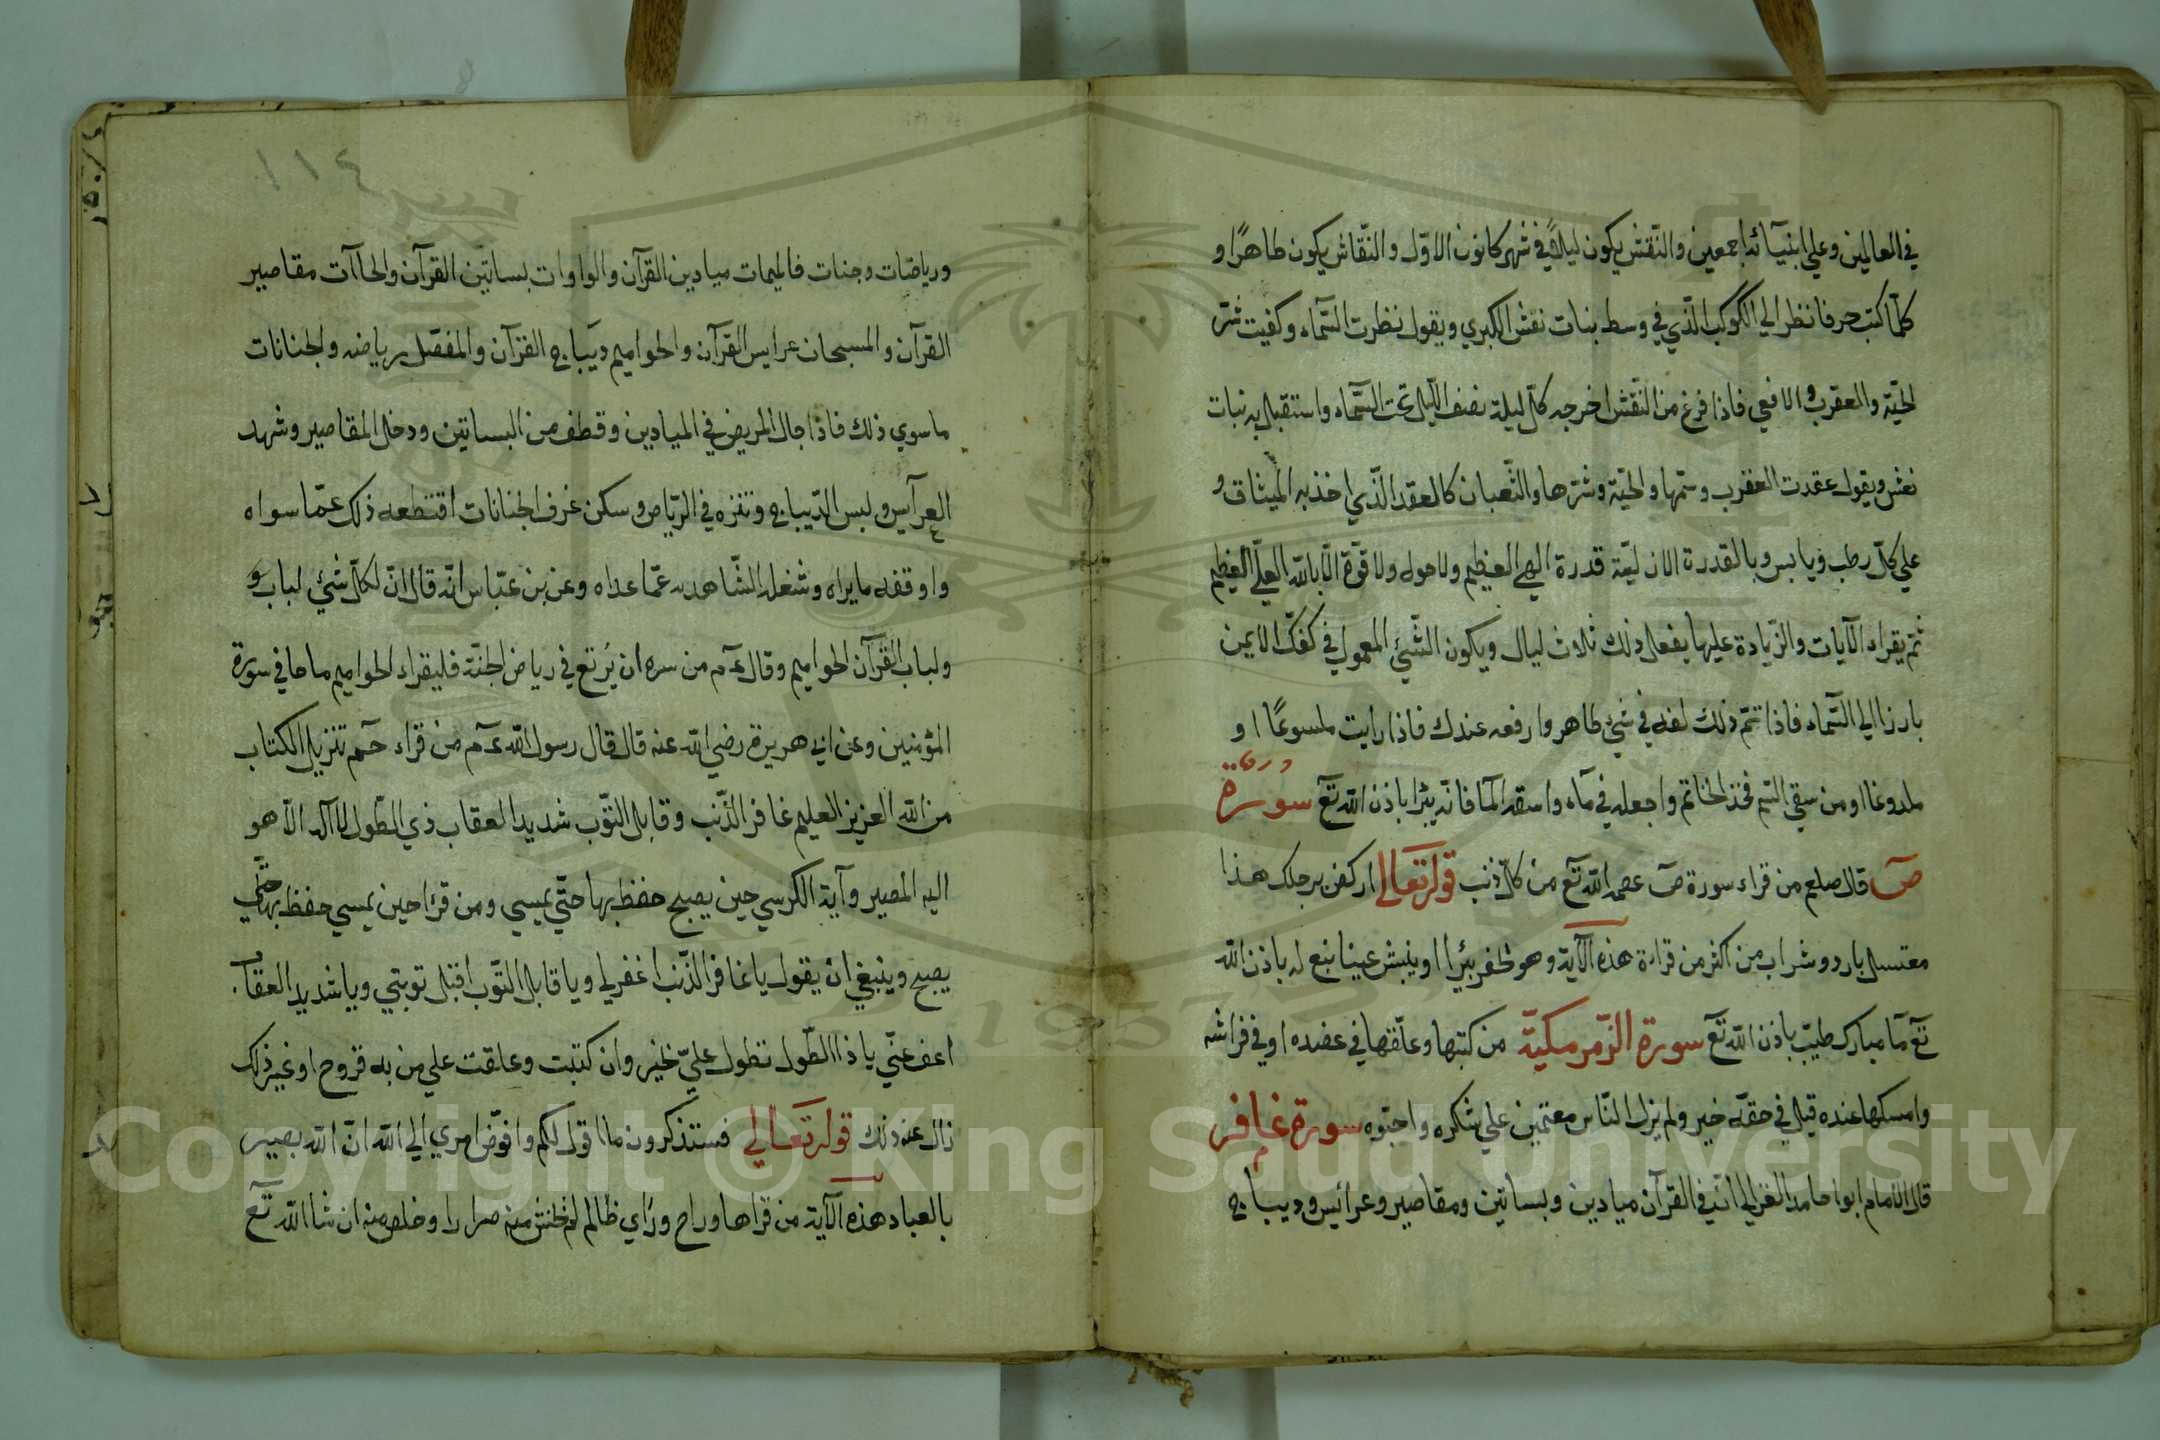 في العالمين وعلي انبيآئه اجمعين والنّقش يكون ليلاً في شهر كانون الاوّل والنّقاش يكون طاهرًا و
كلّما كتب حرفا نظر الي الكوكب الّذي في وسط بنات نعش الكبري ويقول نظرت السّمآء وكفيت شرّ
الحيّة والعقرب والافعي فاذا فرغ من النّقش اخرجه كلّ ليلة نصف اللّيل تحت السّمآء واستقبل به بنات
نعش ويقول عقدت العقرب وسمّها والحيّة وشرّها والثّعبان كالعقد الّذي اخذ به الميثاق و
علي كلّ رطب ويابس وبالقدرة الازليّة قدرة الهي العظيم ولا حول ولا قوّة الّا بالله العليّ العظيم
ثمّ يقراء الآيات والزّيادة عليها يفعل ذلك ثلاث ليال ويكون الشّئ المعمول في كفّك الايمن
بارزا الي السّمآء فاذا تتمّ ذلك لفه في شئ طاهر وارفعه عندك فاذا رايت ملسوعًا او
ملدوغا او من سقي السّم فخذ الخاتم واجعله في مآء واسقه المآ فانّه يبرا باذن الله تعٓ سُورَة
صٓ قال صلعم من قراء سورة صٓ عصمه الله تعٓ من كلّ ذنب قوله تعالي اركض برجلك هذا
مغتسل بارد وشراب من اكثر من قراءة هذه الآية وهو يحفر بئرا او ينبش عينا نبع له باذن الله
تعٓ مآ مبارك طيّب باذن الله تعٓ سورة الزّمر مكيّة من كتبها وعلّقها في عضده او في فراشه
وامسكها عنده قيل في حقّه خير ولم يزل النّاس مقيمين علي شكره واحبّوه سورة غافر
قال الامام ابوا حامد الغزالي انّ في القرآن ميادين وبساتين ومقاصير وعرائيس وديباج
١١٤
ورياضات وجنات فالميمات ميادين القرآن والواوات بساتين القرآن والحاآت مقاصير
القرآن والمسبحان عرايس القرآن والحواميم ديَباج القرآن والمفصّل رياضه والجنانات
ما سوي ذلك فاذا جال المريض في الميادين وقطف من البساتين ودخل المقاصير وشهد
العرآيس ولبس الدّيباج وتنزه في الرّياض وسكن غرف الجنانات اقتطعه ذلك عمّا سواه
واوقفه ما يراه وشغله الشّاهد به عمّا عداه وعن بن عبّاس انّه قال انّ لكلّ شئ لباب و
ولباب القرآن الحواميم وقال عٓم من سره ان يُرتع في رياض الجنّة فليقراء الحواميم ما حا في سورة
المؤمنين وعن ابي هريرة رضي الله عنه قال قال رسول الله عٓم من قراء حمٓ تنزيل الكتاب
من الله العزيز العليم غافر الذّنب وقابل التّوب شديد العقاب ذي الطّول لا آله الّا هو
اليه المصير وآية الكرسي حين يصبح حفظ بها حتّي يمسي ومن قرٰا حين يمسي حفظ بها حتّي
يصبح وينبغي ان يقول يا غافر الذّنب اغفر لي ويا قابل التّوب اقبل توبتي ويا شديد العقاب
اعف عنّي يا ذا الطّول تطول عليّ بخير وان كتبت وعلقت علي من به قروح او غير ذلك
زال عنه ذلك قوله تعَالي فستذكرون ما اقول لكم وافوّض امري الي الله انّ الله بصير
بالعباد هذه الآية من قراها وراح ورٰاي ظالم لم يخش منه ضرارا وخلص منه ان شا الله تعٓ
Copyright © King Saud University
1957